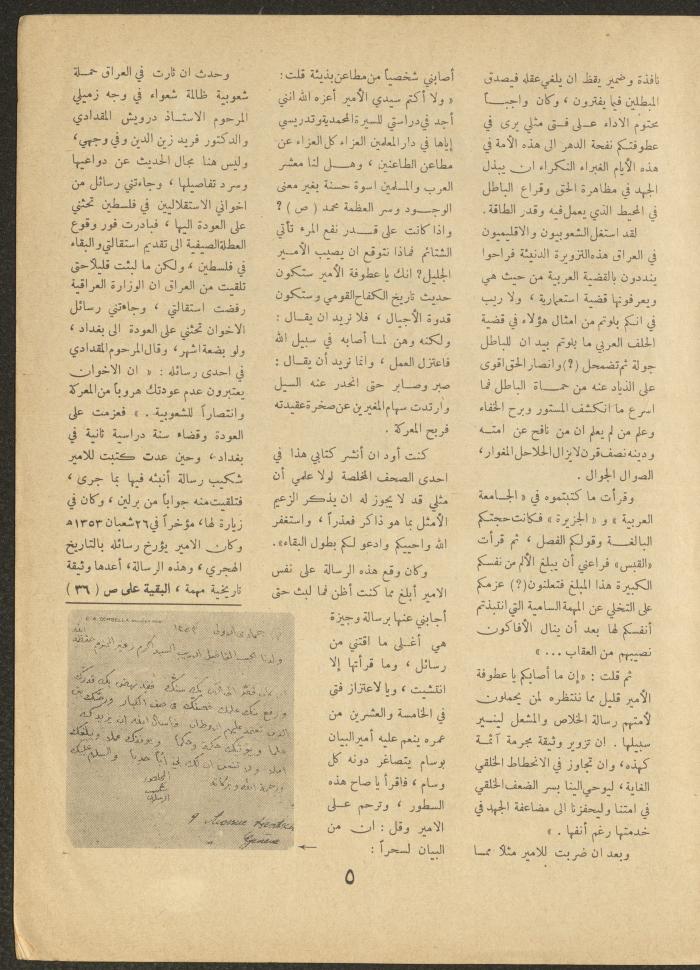 نافذة وضمير يقظ ان يلغي عقله فيصدق
المبطلين فيما يفترون ، وكان واجبـــاً
محتوم الاداء عـــلى فــتى مثلي يرى في
عطوفتـكم نفحة الدهر الى هذه الأمة في
هذه الأيام الغبراء النكراء ان يبذل
الجهد في مظاهرة الحق وقراع الباطل
في المحيط الذي يعمل فيه وقدر الطاقة .
لقد استغل الشعوبيون والاقليميون
في العراق هذه التزويرة الدنيئة فراحوا
ينددون بالقضية العربية من حيث هي
ويعرفونها قضية استعمارية ، ولا ريب
في انـكم بلوتم من امثال هؤلاء في قضية
الحلف العربي ما بلوتم بيد ان للباطل
جولة ثم تضمحل (؟) وانصار الحق اقوى
على الذياد عنه من حمـــاة الباطل فما
اسرع ما انكشف المستور وبرح الخفاء
وعلم من لم يعلم ان من نافح عن امتـــه
ودينه نصف قرن لا يزال الحلاحل المغوار،
الصوال الجوال .
وقرأت ما كتبتموه في « الجـامعة
العربية » و « الجزيرة » فـكانت حجتـكم
البالغـــة وقولـكم الفصل ، ثم قرأت
«القبس» فراعني أن يبلغ الألم من نفسكم
الكبيرة هذا المبلغ فتعلنون(؟) عزمكم
على التخلي عن المهمة السامية التي انتبذتم
أنفسكم لها بعد أن ينال الأفاكون
نصيبهم من العقاب ... »
ثم قلت : « إن ما أصابكم يا عطوفة
الأمير قليل مما ننتظره لمن يحملون
لأمتهم رسالة الخلاص والمشعل لينسير
سبيلها . ان تزوير وثيقة مجرمة آثمـــة
كهذه، وان تجاوز في الانحطاط الخلقي
الغاية ، ليوحي الينا بسر الضعف الخلقي
في امتنا وليحفزنا الى مضاعفة الجهد في
خدمتها رغم أنفها . »
وبعد ان ضربت للامير مثلاً ممـــا
أصابني شخصياً من مطاعن بذيئة قلت :
« ولا أكتم سيدي الأمير أعزه الله انني
أجد في دراستي للسيرة المحمدية وتدريسي
إياها في دار المعلمين العزاء كل العزاء عن
مطاعن الطاعنين ، وهـــل لنا معشر
العرب والمسلمين اسوة حسنة بغير معنى
الوجـــود وسر العظمة محمد ( ص ) ؟
واذا كانت على قـــدر نفع المرء تأتي
الشتائم فماذا نتوقع ان يصيب الأمـــير
الجليل ؟ انك يا عطوفة الأمير ستكون
حديث تاريخ الكفاح القومي وستكون
قدوة الأجيال ، فلا نريد ان يقـــال :
ولكنه وهن لمـا أصابه في سبيل الله
فاعتزل العمل ، وانما نريد أن يقـــال :
صبر وصـــابر حتى انحدر عنه السيل
وارتدت سهام المغيرين عن صخرة عقيدته
فربح المعركة .
كنت أود ان أنشر كتابي هذا في
احدى الصحف المخلصة لولا علمي أن
مثلي قد لا يجوز له ان يذكر الزعيم
الأمثل بما هو ذاكر فعذراً ، واستغفر
الله واحييكم وادعو لـكم بطول البقاء».
وكان وقع هذه الرسالة على نفس
الامير أبلغ مما كنت أظن فما لبث حتى
أجابني عنها برسالة وجيزة
هي أغـــلى ما اقتني من
رسائل ، وما قرأتها إلا
انتشيت ، ويا لاعتزاز فتى
في الخامسة والعشرين من
عمره ينعم عليه أمير البيان
بوسام يتصاغر دونه كل
وسام ، فاقرأ يا صاح هذه
السطور ، وترحم عـــلى
الامير وقل : ان من
البيان لسحراً :
وحدث ان ثارت في العراق حمـــلة
شعوبية ظالمة شعواء في وجه زميلي
المرحوم الاستـــاذ درويش المقدادي
والدكتور فريد زين الدين وفي وجهي،
وليس هنا مجال الحديث عن دواعيها
وسرد تفاصيلها ، وجاءتني رسائل من
اخواني الاستقلاليين في فلسطين تحثني
على العودة اليها ، فبادرت فور وقوع
العطلة الصيفية الى تقديم استقالتي والبقاء
في فلسطين ، ولكن ما لبثت قليلاً حتى
تلقيت من العراق ان الوزارة العراقية
رفضت استقالتي ، وجاءتني رسائل
الاخوان تحثني على العودة الى بغداد ،
ولو بضعة اشهر، وقال المرحوم المقدادي
في احدى رسائله : « ان الاخوان
يعتبرون عدم عودتك هروباً من المعركة
وانتصاراً للشعوبية . » فعزمت على
العودة وقضاء سنة دراسية ثانية في
بغداد ، وحين عدت كتبت للامير
شكيب رسالة أنبئه فيها بما جرى ،
فتلقيت منه جواباً من برلين ، وكان في
زيارة لها، مؤخراً في ٢٦ شعبان ١٣٥٣ هـ
وكان الامير يؤرخ رسائله بالتاريخ
الهجري ، وهذه الرسالة، أعدها وثيقة
تاريخية مهمة ، البقية على ص ( ٣٦ )
جمادى الاولى
الى
9 Avenue
Genève
٥